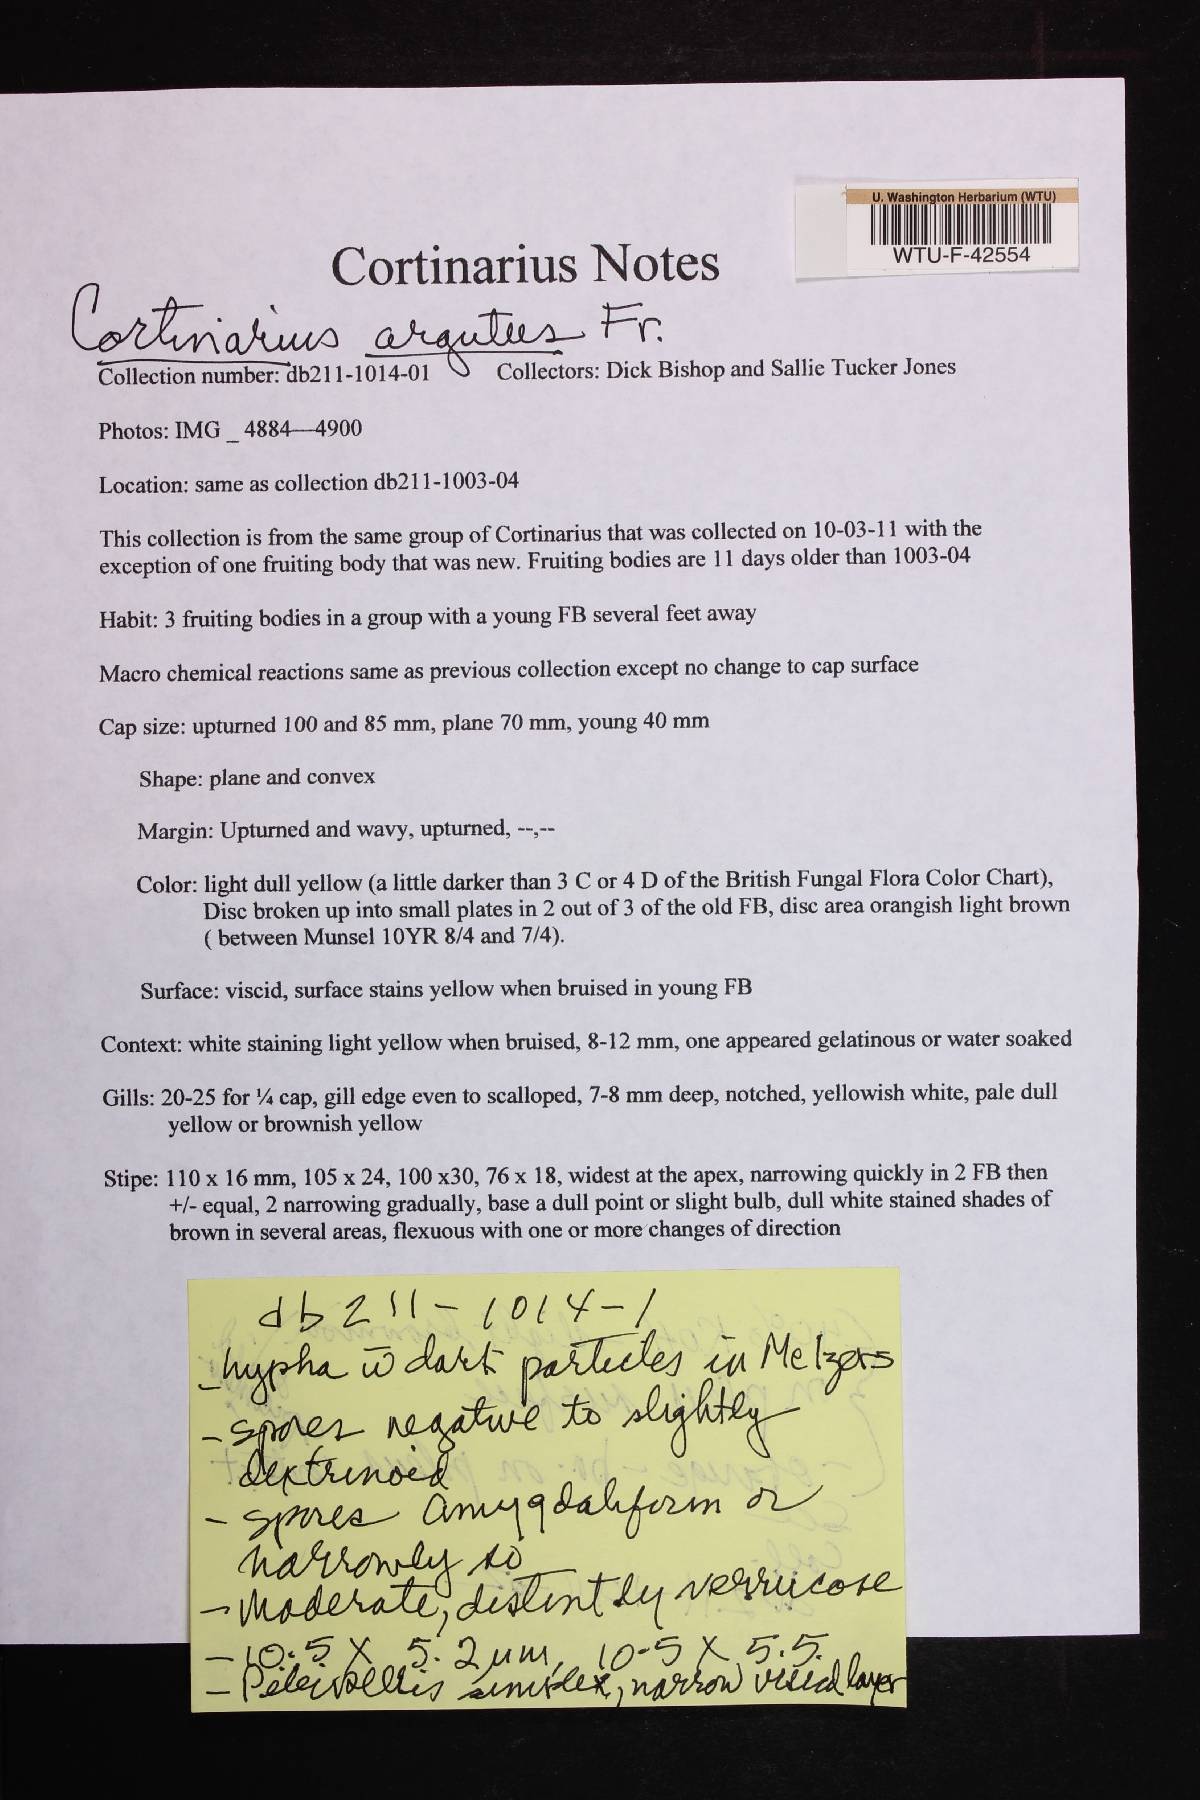 U. Washington Herbarium (WTU)
WTU-F-42554
Cortinarius Notes
Cortinarius argutus Fr.
Collection number: db211-1014-01 Collectors: Dick Bishop and Sallie Tucker Jones
Photos: IMG _ 4884—4900
Location: same as collection db211-1003-04
This collection is from the same group of Cortinarius that was collected on 10-03-11 with the
exception of one fruiting body that was new. Fruiting bodies are 11 days older than 1003-04
Habit: 3 fruiting bodies in a group with a young FB several feet away
Macro chemical reactions same as previous collection except no change to cap surface
Cap size: upturned 100 and 85 mm, plane 70 mm, young 40 mm
Shape: plane and convex
Margin: Upturned and wavy, upturned, --,--
Color: light dull yellow (a little darker than 3 C or 4 D of the British Fungal Flora Color Chart),
Disc broken up into small plates in 2 out of 3 of the old FB, disc area orangish light brown
( between Munsel 10YR 8/4 and 7/4).
Surface: viscid, surface stains yellow when bruised in young FB
Context: white staining light yellow when bruised, 8-12 mm, one appeared gelatinous or water soaked
Gills: 20-25 for ¼ cap, gill edge even to scalloped, 7-8 mm deep, notched, yellowish white, pale dull
yellow or brownish yellow
Stipe: 110 x 16 mm, 105 x 24, 100 x30, 76 x 18, widest at the apex, narrowing quickly in 2 FB then
+/- equal, 2 narrowing gradually, base a dull point or slight bulb, dull white stained shades of
brown in several areas, flexuous with one or more changes of direction
db211-1014-1
- hypha w̄ dark particles in Melzers
- spores negative to slightly
dextrinoid
- spores amygdaliform or
narrowly so
- moderate, distintly verrucose
- 10.5 X 5.2 µm, 10.5 X 5.5.
- Pileipellis simplex, narrow viscid layer